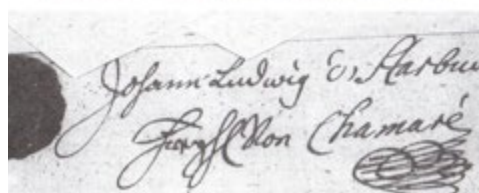 Johann Ludwig v. Harbu
Joseph Von Chamaré